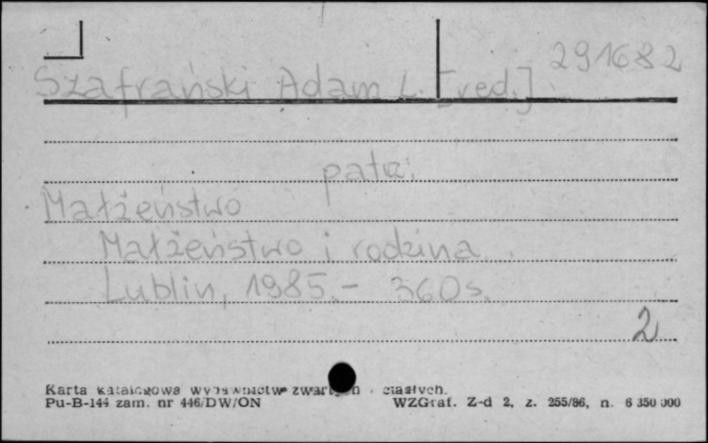 291682
Szafrański Adam L. [red.]
patrz:
Małżeństwo
Małżeństwo i rodzina
Lublin, 1985.- 360s.
2
Karta katalogowa wydawnictw zwartych ciągłych.
Pu-B-144 zam. nr 446/DW/ON WZGraf. Z-d 2, z. 255/86, n. 6 350 000